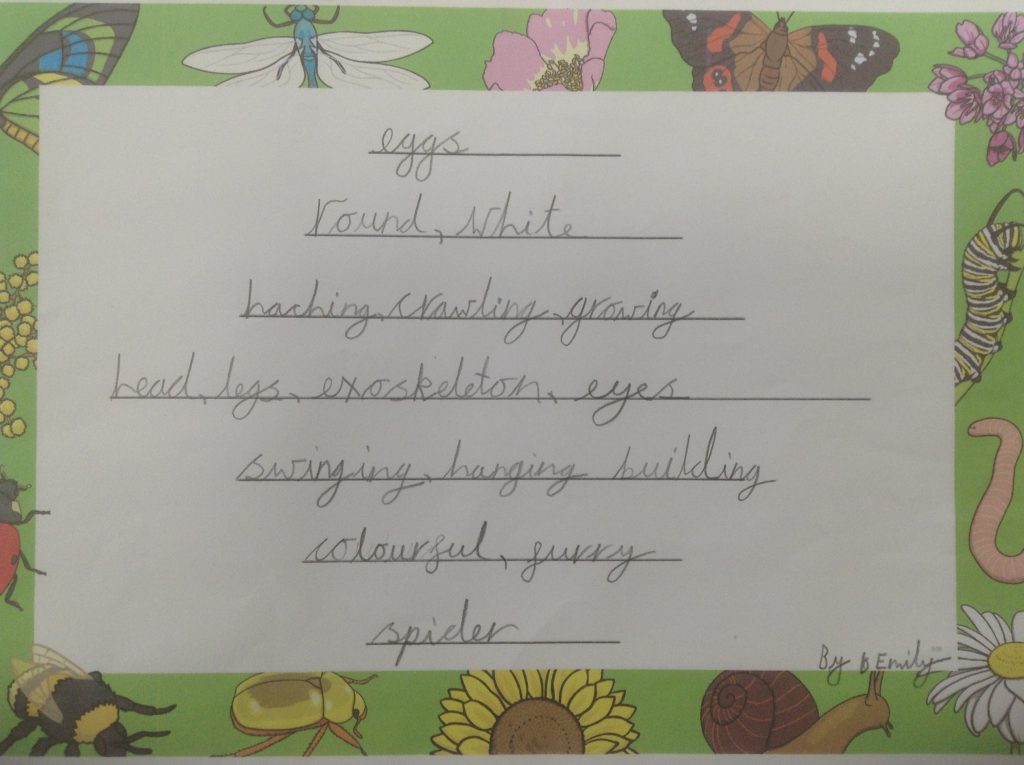 eggs
round, white
haching, crawling, growing
head, legs, exoskeleton, eyes
swinging, hanging building
colourful, furry
spider
By Emily